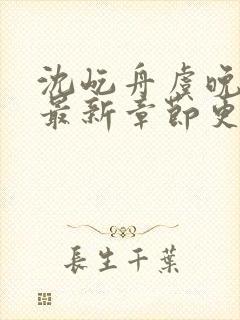 沈屹舟虞晚
最新章节更
長生千葉